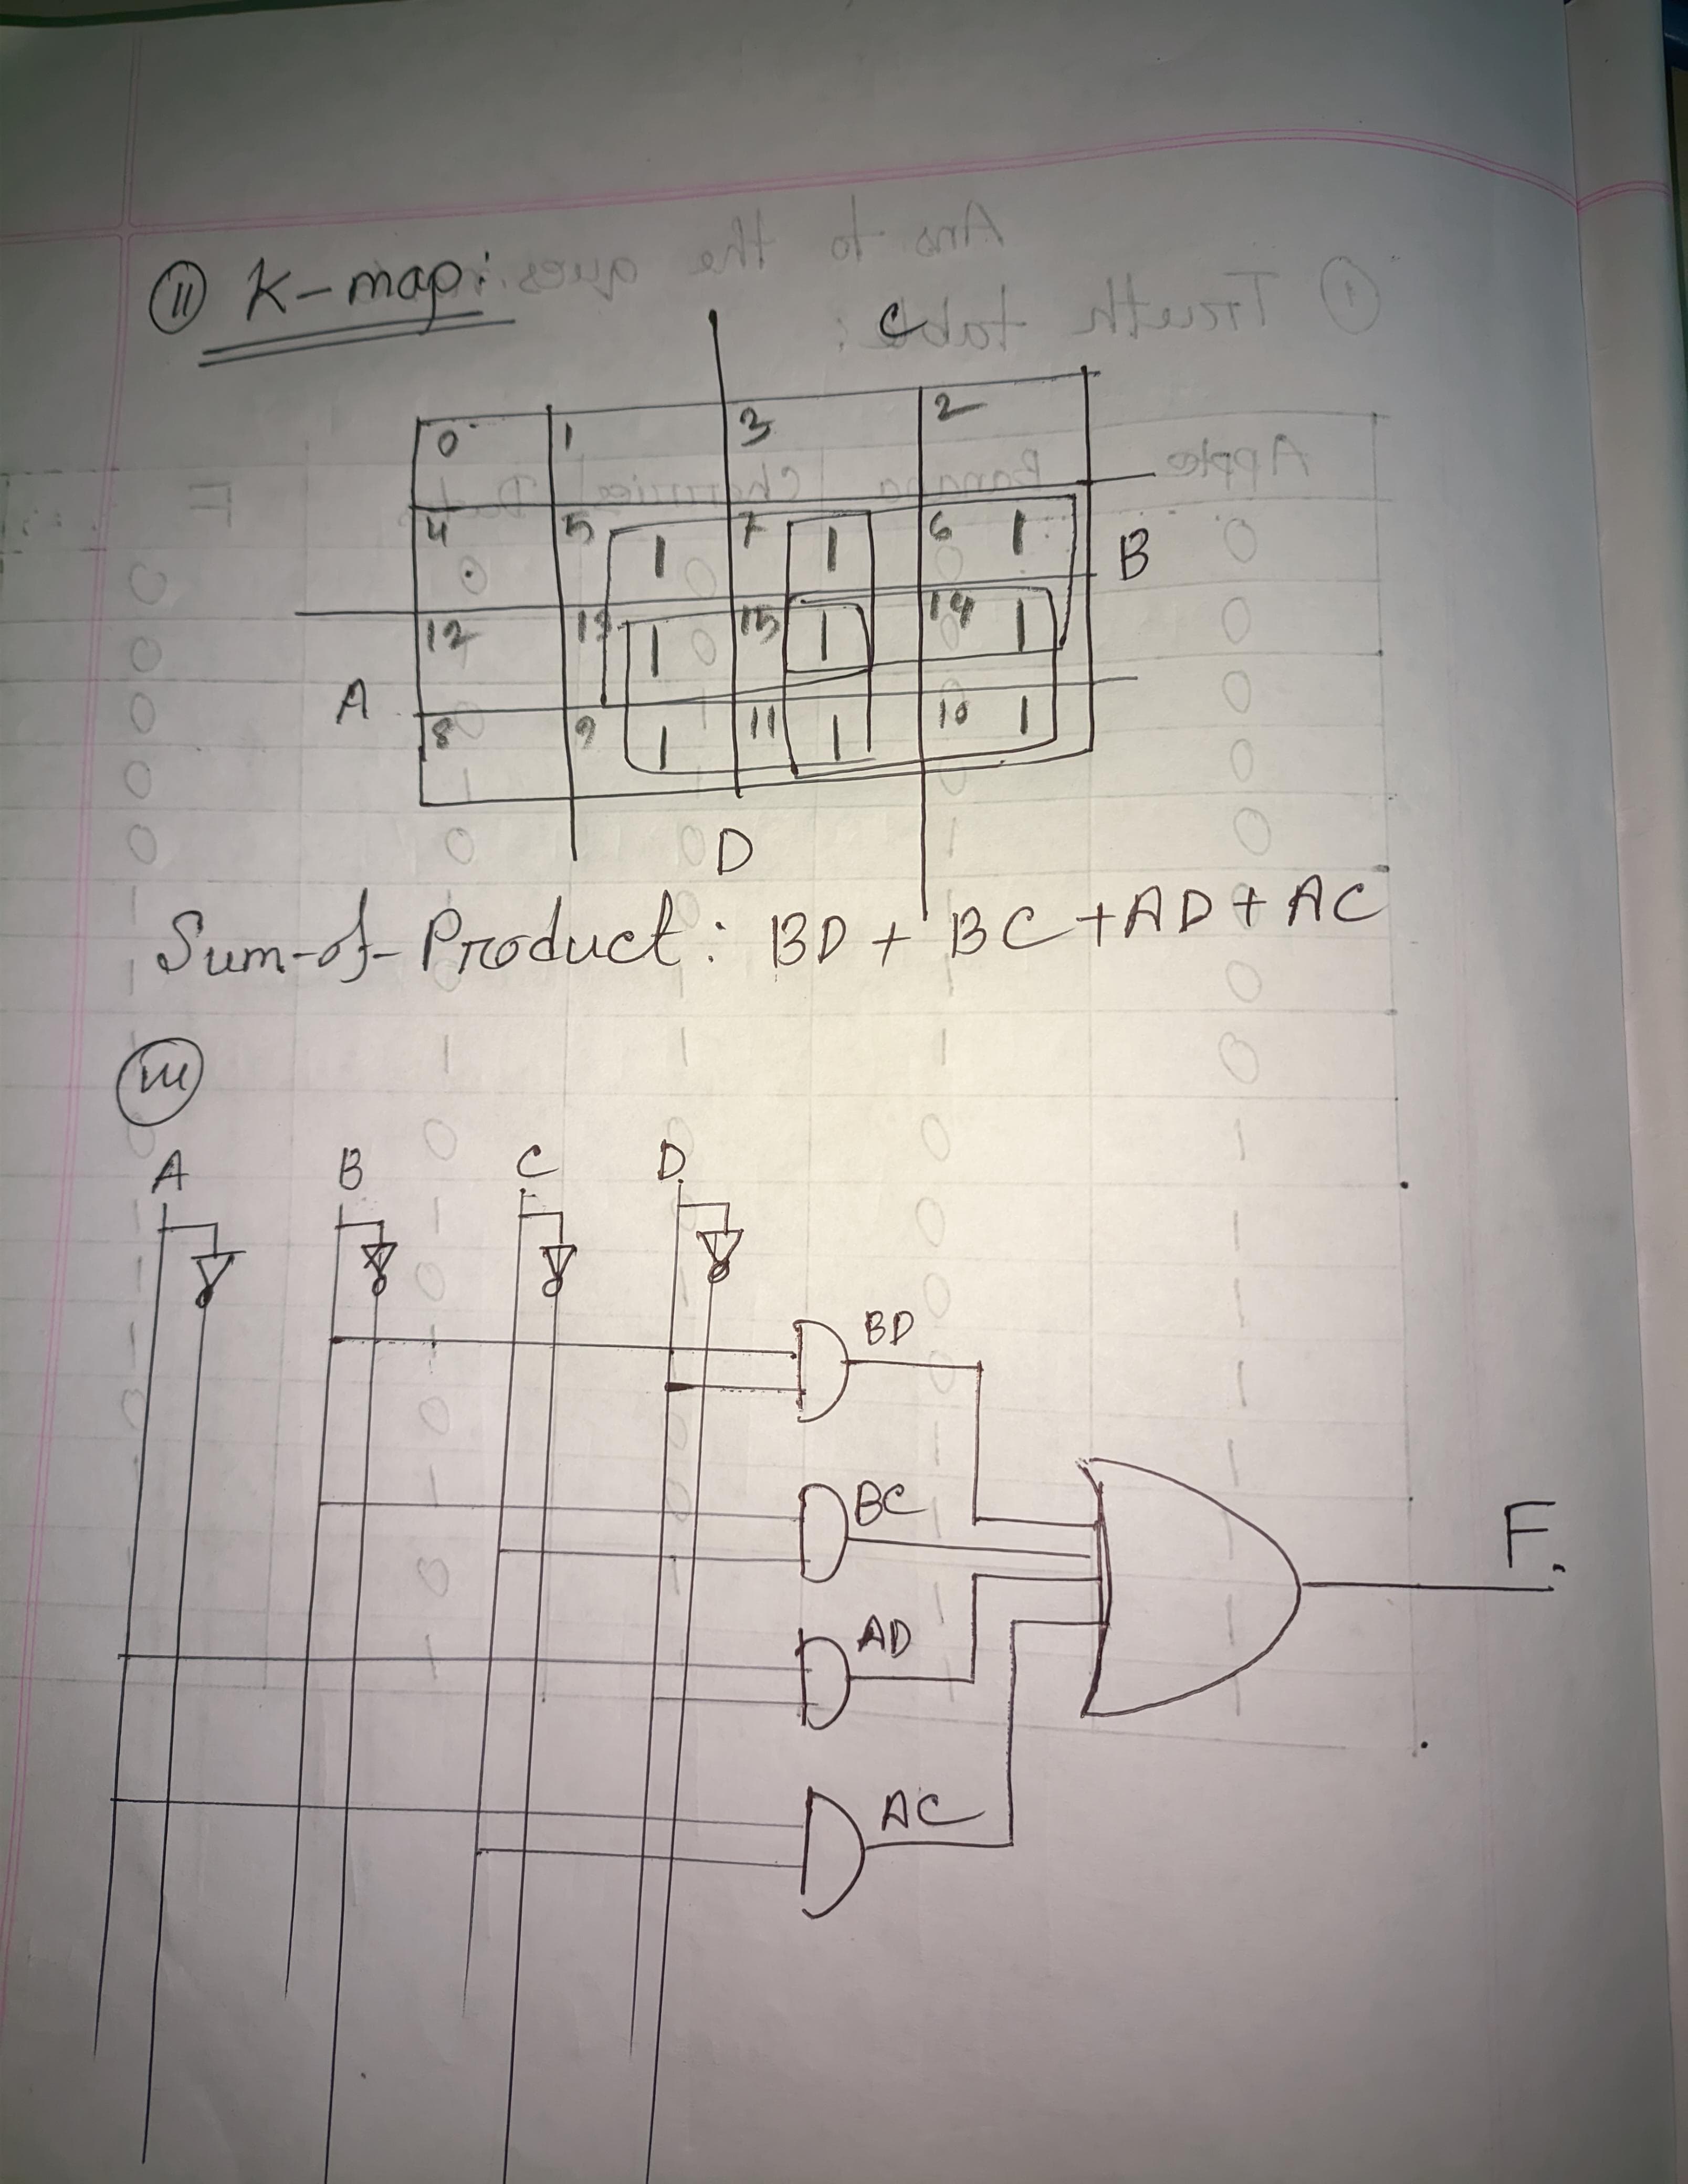 II K-map:
C
0 1 3 2
4 5 1 7 1 6 1 B
12 13 1 15 1 14 1
A
8 9 1 11 1 10 1
D
Sum-of-Product: BD + BC + AD + AC
III
A B C D
BD
BC
F.
AD
AC